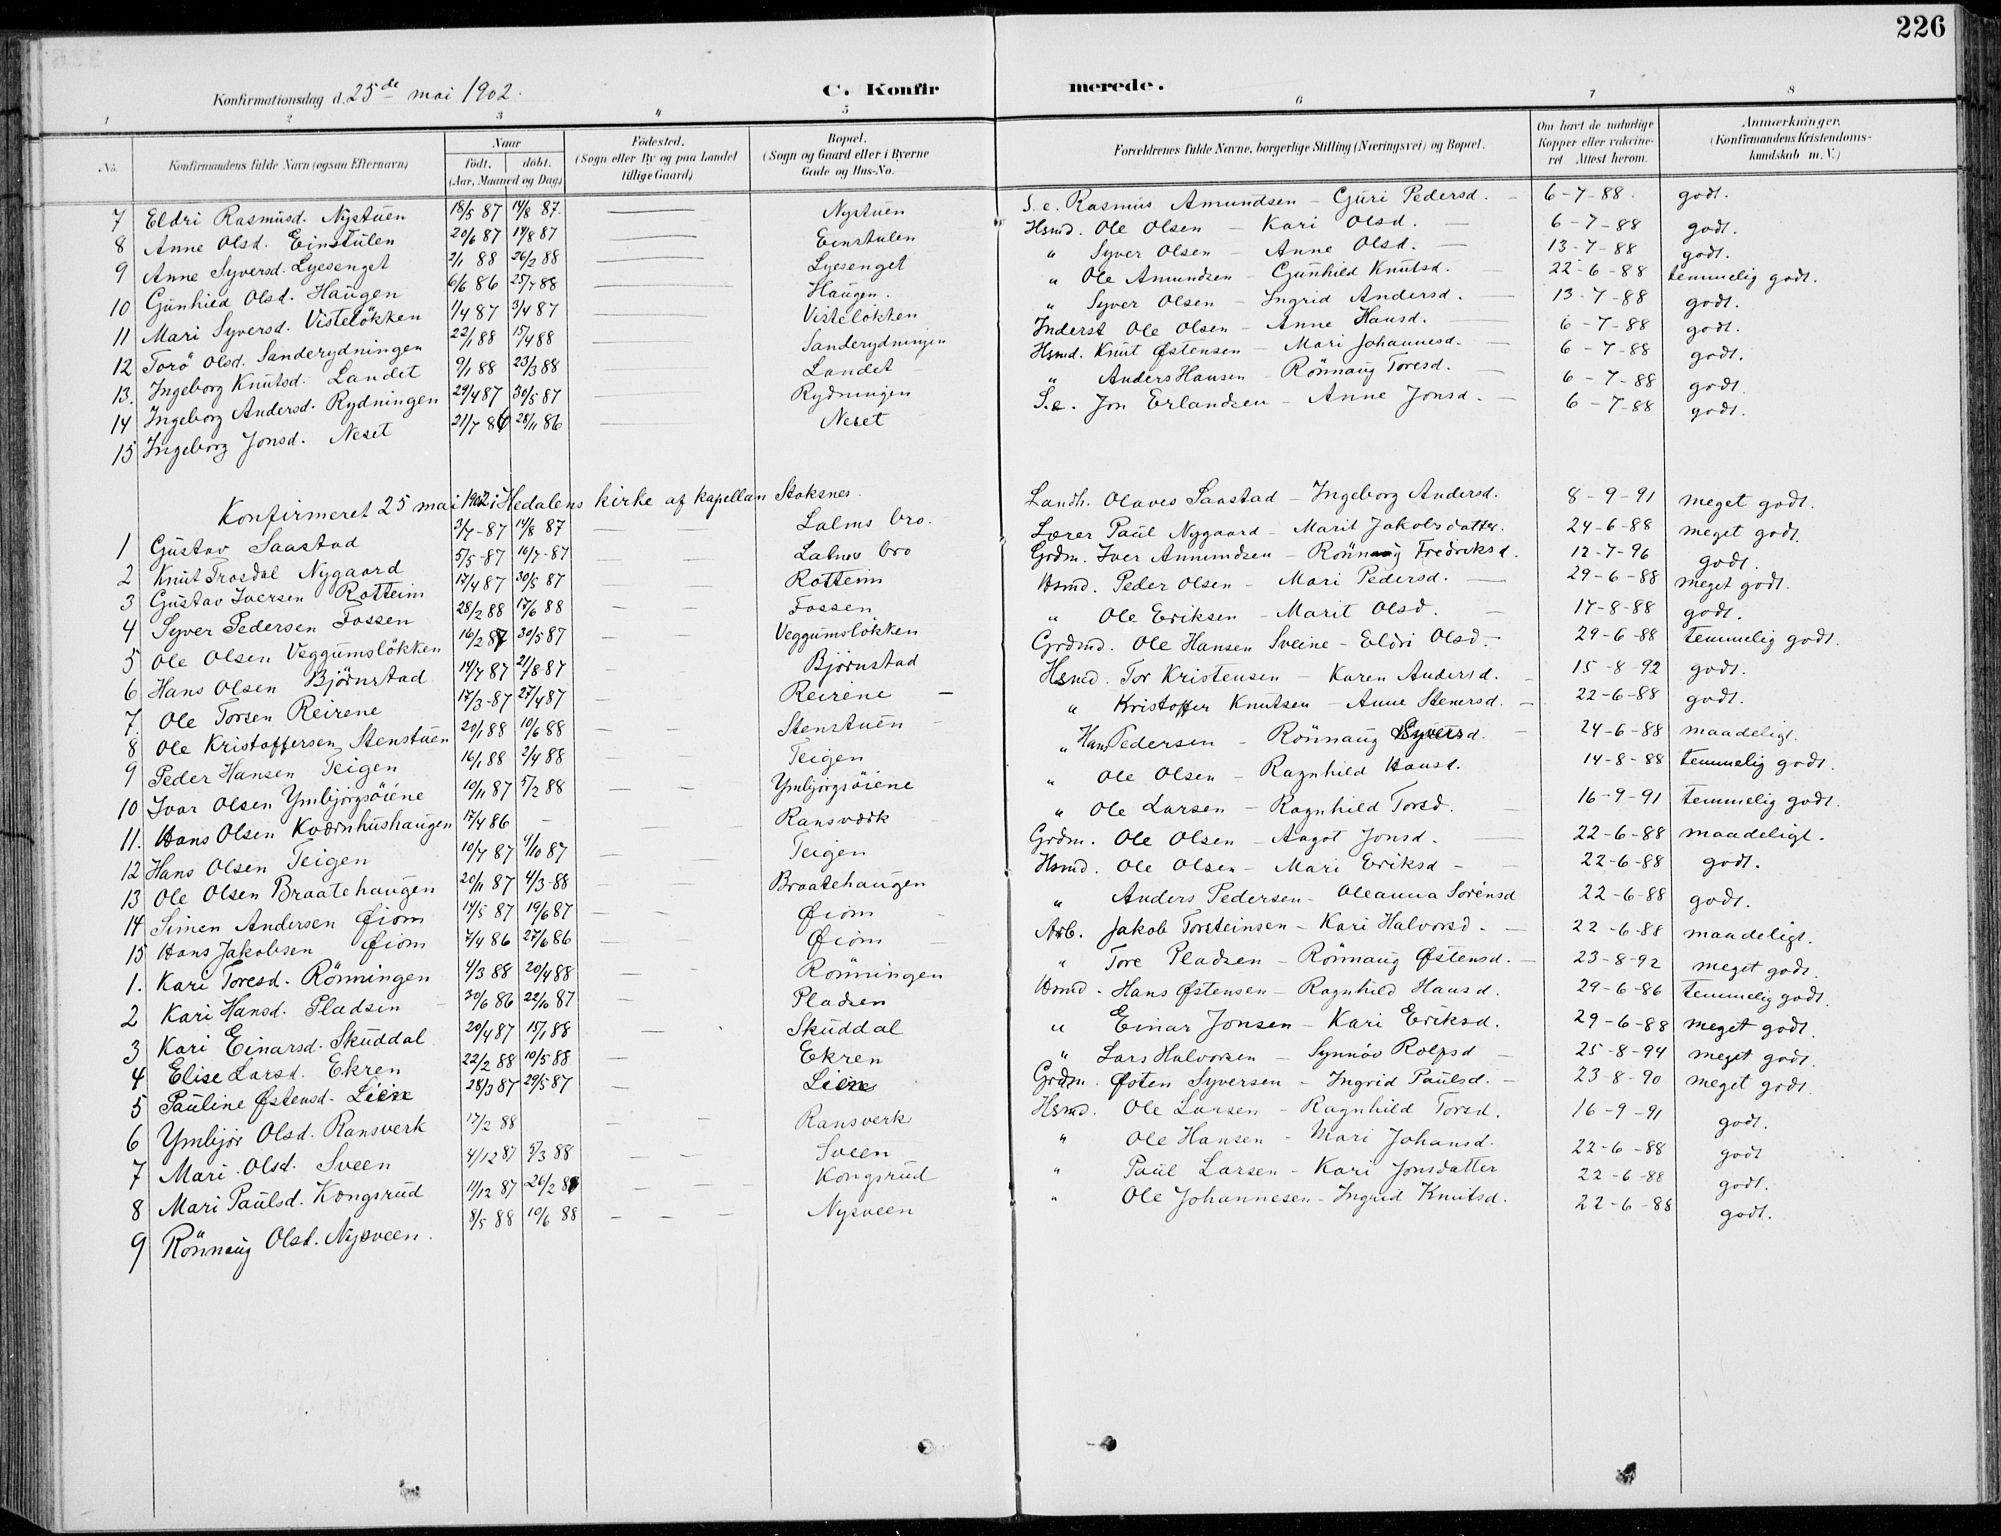 226
Konfirmationsdag d. 25de mai 1902. C. Konfirmerede.
1 2 3 4 5 6 7 8
No. Konfirmandens fulde Navn (ogsaa Efternavn) Naar födt. döbt. (Aar, Maaned og Dag) Födested. (Sogn eller By og paa Landet tillige Gaard) Bopæl. (Sogn og Gaard eller i Byerne Gade og Hus-No. Forældrenes fulde Navne, borgerlige Stilling (Næringsvei) og Bopæl. Om havt de naturlige Kopper eller vakcineret. Attest herom. Anmærkninger. (Konfirmandens Kristendomskundskab m. V.)
7 Eldri Rasmusd. Nystuen 18/5 87 14/8 87. Nystuen S.e. Rasmus Amundsen - Guri Pedersd. - 6-7-88. godt.
8 Anne Olsd. Einstulen 20/6 87 14/8 87 Einstulen Hsmd. Ole Olsen - Kari Olsd. - 6-7-88 godt.
9 Anne Syversd. Lyesenget 2/1 88 26/2 88 Lyesenget " Syver Olsen - Anne Olsd. - 13-7-88 godt.
10 Gunhild Olsd. Haugen 6/6 86 25/7 88 Haugen. " Ole Amundsen - Gunhild Knutsd. - 22-6-88 temmelig godt.
11 Mari Syversd. Vistelökken 1/4 87 3/4 87 Vistelökken " Syver Olsen - Ingrid Andersd. - 13-7-88 godt.
12 Torö Olsd. Sanderydningen 22/1 88 15/4 88 Sanderydningen Inderst Ole Olsen - Anne Hansd. - 6-7-88 godt.
13. Ingeborg Knutsd. Landet 9/1 88 23/3 88 Landet Hsmd. Knut Østensen - Mari Johannesd. - 6-7-88 godt.
14 Ingeborg Andersd. Rydningen 29/4 87 30/5 87 Rydningen " Anders Hansen - Rönnaug Toresd. - 6-7-88 godt.
15 Ingeborg Jonsd. Neset 21/7 86 28/11 86 Neset S.e. Jon Erlandsen - Anne Jonsd. - 6-7-88 godt.
Konfirmeret 25 mai 1902 i Hedalens kirke af kapellan Stoksnes.
1 Gustav Saastad 3/7-87 14/8 87 Lalms bro. Landh. Olaves Saastad - Ingeborg Andersd. 8-9-91 meget godt.
2 Knut Trosdal Nygaard 5/5-87 10/7-87 Lalms bro Lærer Paul Nygaard - Marit Jakobsdatter. 24-6-88 meget godt.
3 Gustav Iversen Rotteim 17/4 87 30/5 87 Rotteim Grdm. Iver Amundsen - Rönnaug Fredriksd. 12-7-96 godt.
4 Syver Pedersen Fossen 28/2 88 17/6 88 Fossen Hsmd. Peder Olsen - Mari Pedersd. - 29-6-88 meget godt.
5 Ole Olsen Veggumslökken 16/2 87 30/5 87 Veggumslökken " Ole Eriksen - Marit Olsd. - 17-8-88 godt.
6 Hans Olsen Björnstad 14/7 87 21/8-87 Björnstad Grdmd. Ole Hansen Sveine - Eldri Olsd - 29-6-88 temmelig godt.
7. Ole Torsen Reirene 17/3-87 27/4 87 Reirene - Hsmd. Tor Kristensen - Karen Andersd. - 15-8-92 godt.
8 Ole Kristoffersen Stenstuen 20/1 88 10/6 88 Stenstuen - " Kristoffer Knutsen - Anne Stenersd. - 22-6-88 godt.
9 Peder Hansen Teigen 16/1 88 2/4 88 Teigen " Hans Pedersen - Rönnaug Syversd. - 24-6-88 maadeligt.
10 Ivar Olsen Ymbjörgsöiene 10/11 87 5/2 88 Ymbjörgsöiene " Ole Olsen - Ragnhild Hansd. 14-8-88 temmelig godt.
11. Hans Olsen Kværnhushaugen 17/4 86 - Ransværk " Ole Larsen - Ragnhild Torsd. - 16-9-91 temmelig godt.
12 Hans Olsen Teigen 10/7 87 9/10 87 Teigen Grdm. Ole Olsen - Aagot Jonsd. - 22-6-88 maadeligt.
13 Ole Olsen Braatehaugen 20/11 87 4/3-88 Braatehaugen Hsmd. Ole Olsen - Mari Eriksd - - 22-6-88 godt.
14 Simen Andersen Øiom 14/5 87 19/6 87 Øiom - " Anders Pedersen - Oleanna Sorensd 22-6-88 godt.
15 Hans Jakobsen Øiom 7/4 86 27/6 86 Øiom - Arb. Jakob Torsteinsen - Kari Halvorsd. - 22-6-88 maadeligt.
1. Kari Toresd. Rönningen 4/3 88 20/4 88 Rönningen " Tore Pladsen - Rönnaug Østensd. - 23-8-92 meget godt.
2 Kari Hansd. Pladsen 20/6 86 22/10 87 Pladsen Hsmd. Hans Østensen - Ragnhild Hansd. 29-6-86 temmelig godt.
3 Kari Einarsd. Skuddal 20/4 87 15/1 88 Skuddal " Einar Jonsen - Kari Eriksd. 29-6-88 meget godt.
4 Elise Larsd. Ekren 22/2 88 10/5 88 Ekren " Lars Halvorsen - Synnöv Rolfsd - 25-8-94 meget godt.
5 Pauline Østensd. Lien 28/3 87 29/5 87 Lien Grdm. Østen Syversen - Ingrid Paulsd. - 23-8-90 meget godt.
6 Ymbjör Olsd. Ransverk 17/2 88 Ransverk Hsmd. Ole Larsen - Ragnhild Torsd. 16-9-91 godt.
7 Mari Olsd. Sveen 4/12 87 5/3 88 Sveen " Ole Hansen - Mari Johansd. 22-6-88 godt
8 Mari Paulsd. Kongsrud 11/12 87 26/2 88 Kongsrud " Paul Larsen - Kari Jonsdatter 22-6-88 godt.
9 Rönnaug Olsd. Nysveen. 8/5 88 10/6 88 Nysveen " Ole Johannesen - Ingrid Knutsd. 22-6-88 godt.